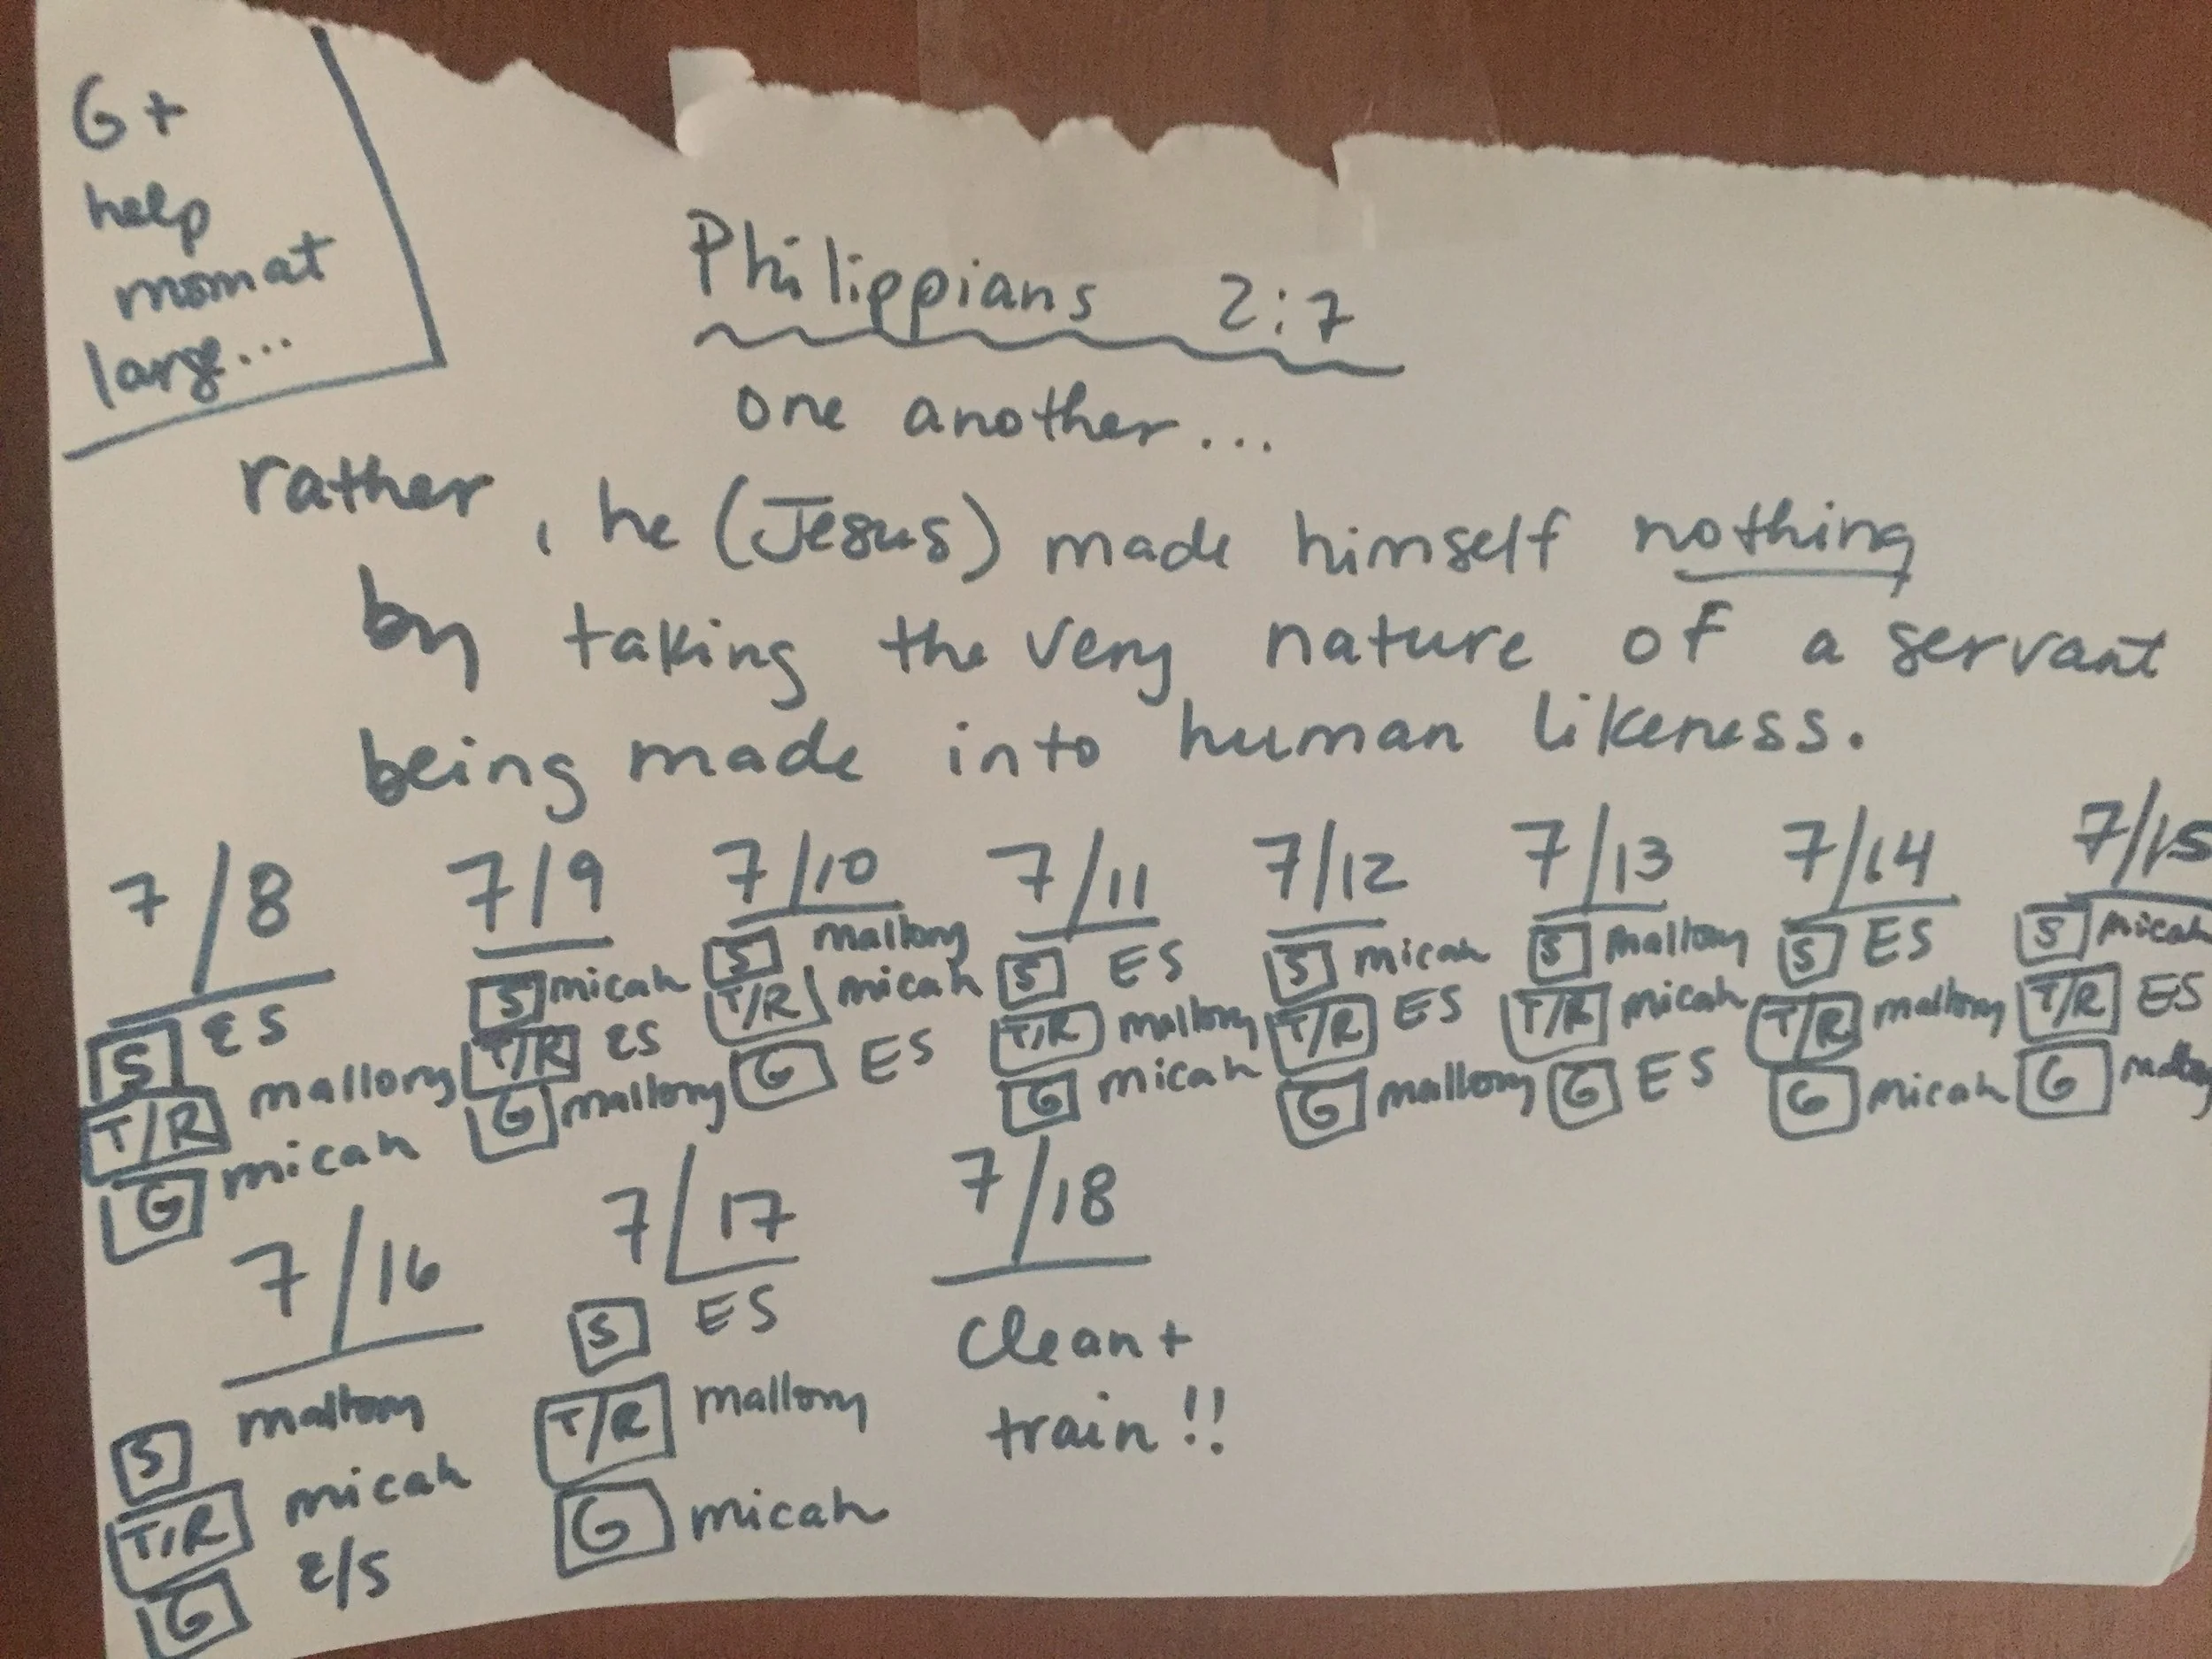 G+
help
mom at
large...
Philippians 2:7
one another...
rather, he (Jesus) made himself nothing
by taking the very nature of a servant
being made into human likeness.
7/8
S ES
T/R mallory
G micah
7/9
S micah
T/R ES
G mallory
7/10
S mallory
T/R micah
G ES
7/11
S ES
T/R mallory
G micah
7/12
S micah
T/R ES
G mallory
7/13
S mallory
T/R micah
G ES
7/14
S ES
T/R mallory
G micah
7/15
S micah
T/R ES
G mallory
7/16
S mallory
T/R micah
G E/S
7/17
S ES
T/R mallory
G micah
7/18
Clean +
train!!